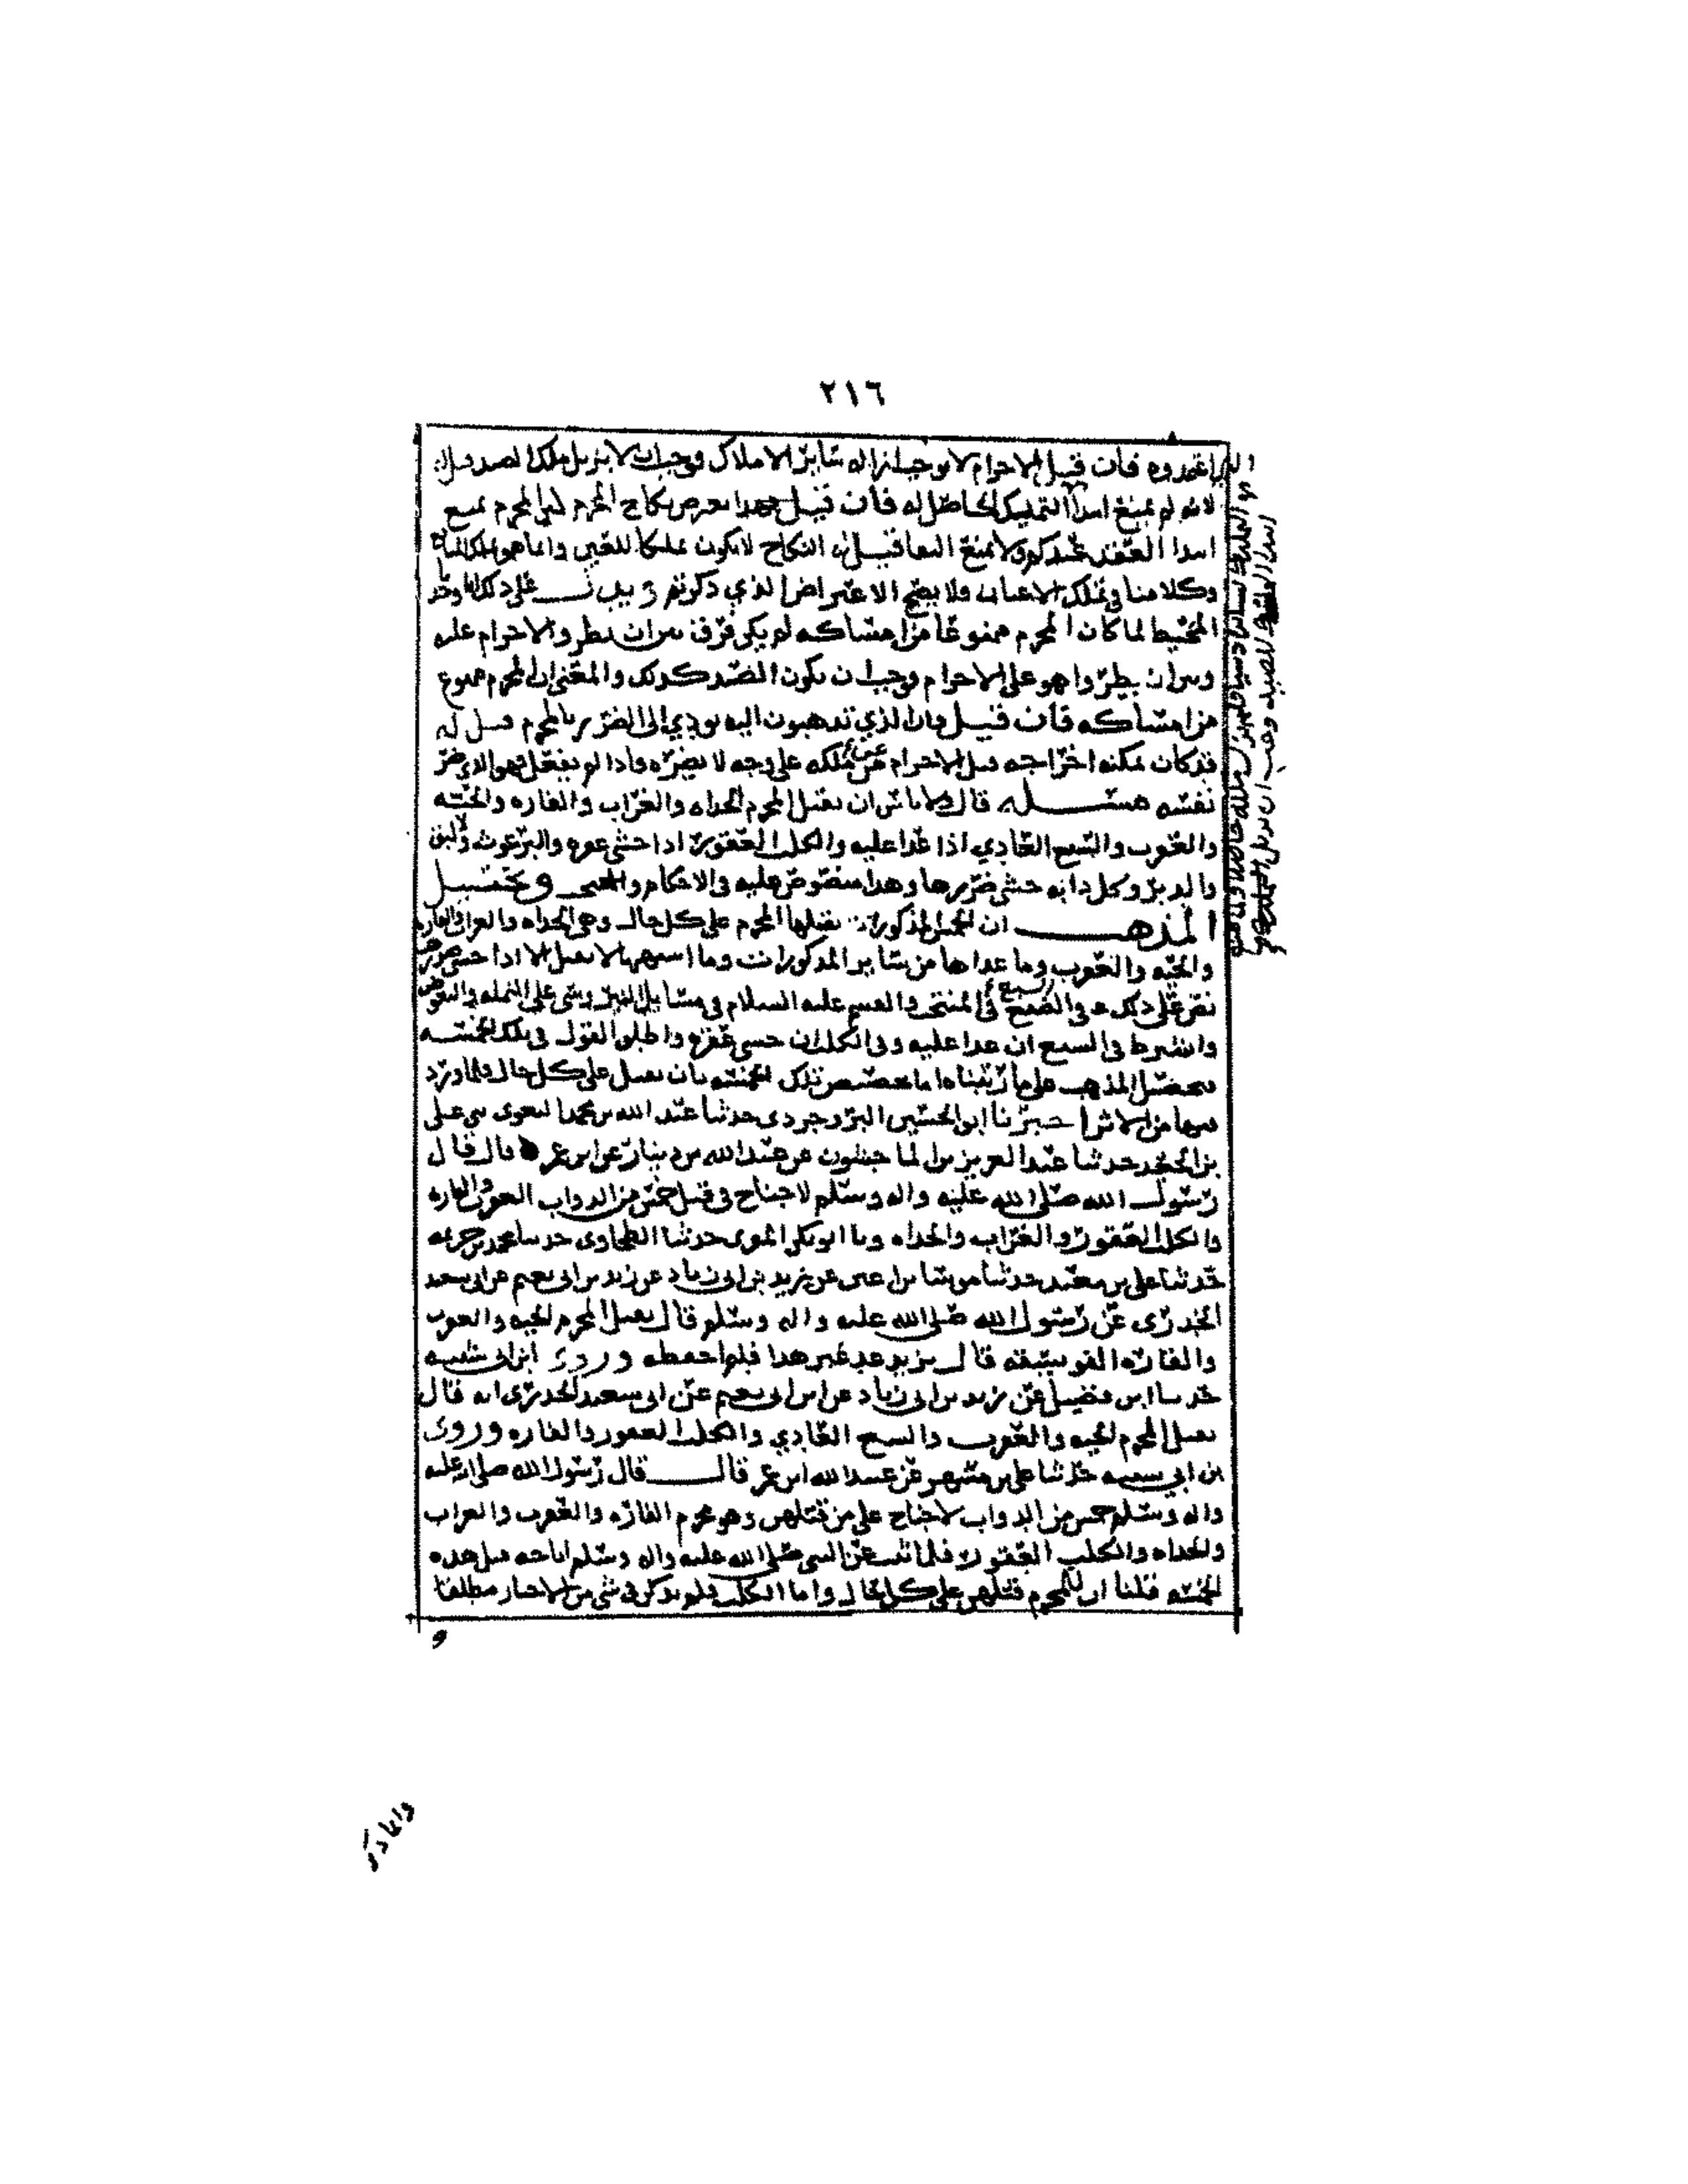 ٢١٦
فان قيل الاحرام لا يوجب ازاله سائر الاملاك فوجب ان لا يزيل ملك الصيد قيل له
لانه لم يمنع ابتدا التمليك الحاصل له فان قيل هذا يعرض نكاح المحرم لان المحرم يمنع
ابتدا العقد عندكم ولا يمنع البقا قيل له النكاح لا يكون تملكا للعين وانما هو
وكلامنا في تملك الاعيان فلا يصح الاعتراض الذي ذكرتم على ذلك
المخيط لما كان المحرم ممنوعا من امساكه لم يكن فرق بين ان يطروا الاحرام عليه
وبين ان يطروا هو على الاحرام فوجب ان يكون الصيد كذلك والمعنى ان المحرم ممنوع
من امساكه فان قيل فان الذي تذهبون اليه يودي الى الضرر بالمحرم قيل له
قد كان يمكنه اخراجه قبل الاحرام عن ملكه على وجه لا يضره فاذا لم يفعل فهو الذي ضر
نفسه مسئله قال ولا باس ان يقتل المحرم الحداه والغراب والفاره والحيه
والعقرب والسبع العادي اذا عدا عليه والكلب العقور اذا خشي عقره والبرغوث والبق
والدبر وكل دابه خشي ضررها وهذا منصوص عليه في الاحكام والمنتخب وتحصيل
المذهب ان الخمس المذكورة يقتلها المحرم على كل حال وهي الحداه والغراب والفاره
والحيه والعقرب وما عداها من سائر المذكورات وما اشبهها لا يقتل الا اذا خشي ضرره
نص على ذلك في السبع في المنتخب والقسم عليه السلام في مسايل على النمله والبعوض
واشترط في السبع ان عدا عليه وفي الكلب ان خشي عقره واطلق القول في تلك الخمسه
فتحصل المذهب على ما رتبناه اما تخصيص تلك الخمسه بان تقتل على كل حال فلما ورد
فيها من الاثر اخبرنا ابو الحسين البروجردي حدثنا عبد الله بن محمد البغوي علي
بن الجعد حدثنا عبد العزيز بن الماجشون عن عبد الله بن دينار عن ابن عمر قال قال
رسول الله صلى الله عليه واله وسلم لا جناح في قتل خمس من الدواب العقرب والفاره
والكلب العقور والغراب والحداه ونا ابو بكر المقري حدثنا الطحاوي حدثنا محمد بن خزيمه
حدثنا علي بن معبد حدثنا موسى بن اعين عن يزيد بن ابي زياد عن ابن ابي نعيم عن ابي سعيد
الخدري عن رسول الله صلى الله عليه واله وسلم قال يقتل المحرم الحيه والعقرب
والفاره الفويسقه قال يزيد عد غير هذا فلم احفظه وروى ابن ابي شيبه
حدثنا ابن فضيل عن يزيد بن ابي زياد عن ابن ابي نعيم عن ابي سعيد الخدري انه قال
يقتل المحرم الحيه والعقرب والسبع العادي والكلب العقور والفاره وروى
بن ابي شيبه حدثنا علي بن مسهر عن عبيد الله ابن عمر قال قال رسول الله صلى الله عليه
واله وسلم خمس من الدواب لا جناح على من قتلهن وهو محرم الفاره والعقرب والغراب
والحداه والكلب العقور فلما ثبت عن النبي صلى الله عليه واله وسلم اباحه قتل هذه
الخمسه قلنا ان للمحرم قتلهن على كل حال واما الكلب فلم يذكر في شي من الاخبار مطلقا